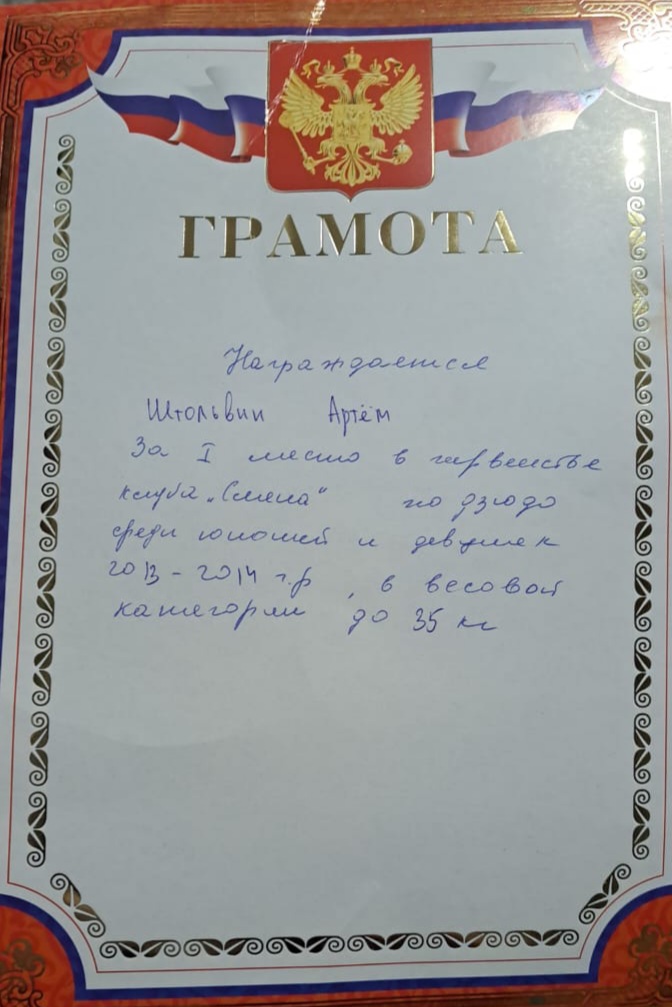 ГРАМОТА
Награждается
Штольвин Артём
За I место в первенстве
клуба „Смена" по дзюдо
среди юношей и девушек
2013-2014 г.р, в весовой
категории до 35 кг